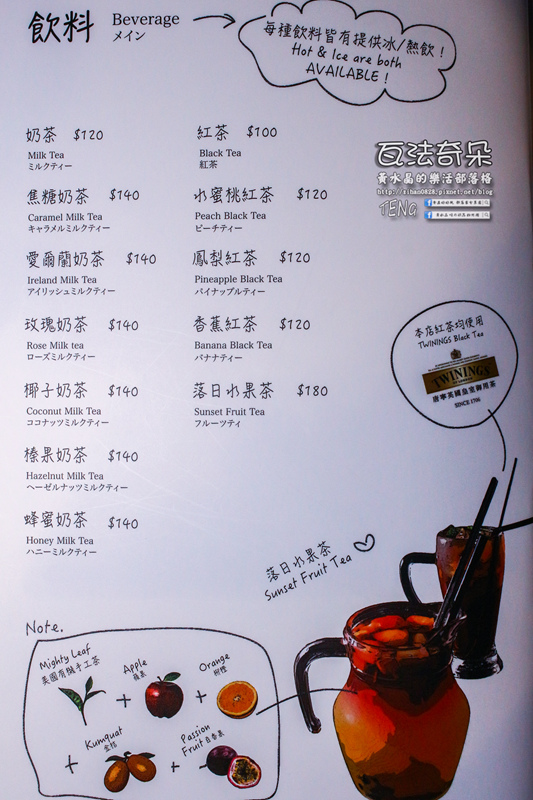 飲料
Beverage
メイン
每種飲料皆有提供冰/熱飲！
Hot & Ice are both
AVAILABLE！
奶茶 $120
Milk Tea
ミルクティー
焦糖奶茶 $140
Caramel Milk Tea
キャラメルミルクティー
愛爾蘭奶茶 $140
Ireland Milk Tea
アイリッシュミルクティー
玫瑰奶茶 $140
Rose Milk tea
ローズミルクティー
椰子奶茶 $140
Coconut Milk Tea
ココナッツミルクティー
榛果奶茶 $140
Hazelnut Milk Tea
ヘーゼルナッツミルクティー
蜂蜜奶茶 $140
Honey Milk Tea
ハニーミルクティー
紅茶 $100
Black Tea
紅茶
水蜜桃紅茶 $120
Peach Black Tea
ピーチティー
鳳梨紅茶 $120
Pineapple Black Tea
パイナップルティー
香蕉紅茶 $120
Banana Black Tea
バナナティー
落日水果茶 $180
Sunset Fruit Tea
フルーツティ
瓦法奇朵
黃水晶的樂活部落格
http://sihao0828.pixnet.net/blog
TENG
本店紅茶均使用
TWININGS Black Tea
TWININGS
OF LONDON
唐寧英國皇室御用茶
SINCE 1706
落日水果茶
Sunset Fruit Tea
Note.
Mighty Leaf
美國有機手工茶
+
Apple
蘋果
+
Orange
柳橙
+
Kumquat
金桔
+
Passion
Fruit 百香果